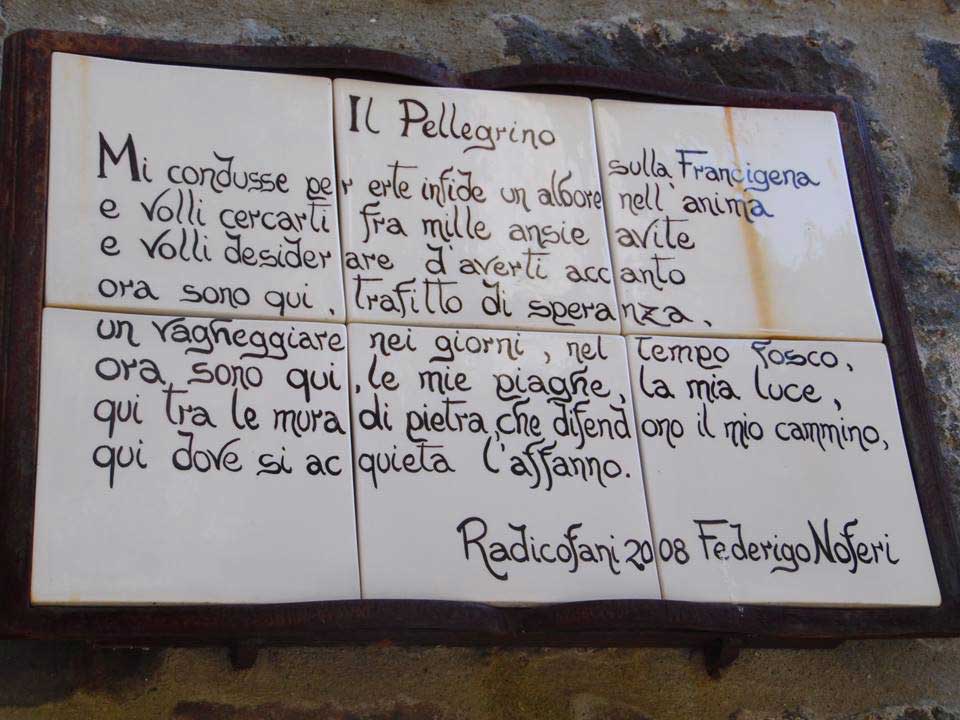 Il Pellegrino
Mi condusse per erte infide un albore sulla Francigena
e volli cercarti fra mille ansie nell'anima
e volli desiderare d'averti accanto avite
ora sono qui, trafitto di speranza,
un vagheggiare nei giorni, nel tempo fosco,
ora sono qui, le mie piaghe, la mia luce,
qui tra le mura di pietra, che difendono il mio cammino,
qui dove si acquieta l'affanno.
Radicofani 2008 Federigo Noferi